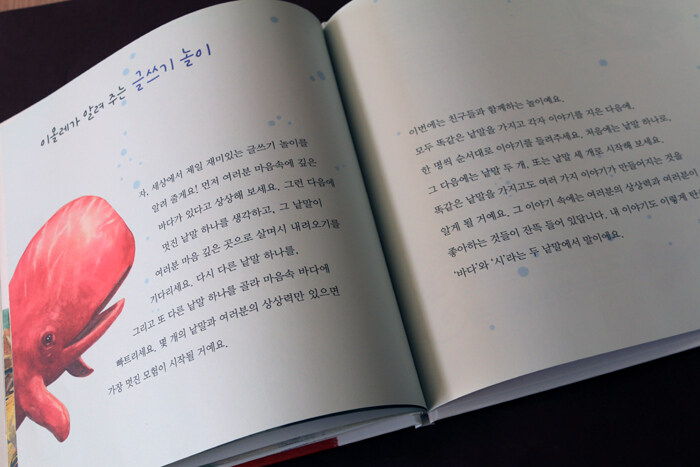 이올레가 알려 주는 글쓰기 놀이
자, 세상에서 제일 재미있는 글쓰기 놀이를
알려 줄게요! 먼저 여러분 마음속에 깊은
바다가 있다고 상상해 보세요. 그런 다음에
멋진 낱말 하나를 생각하고, 그 낱말이
여러분 마음 깊은 곳으로 살며시 내려오기를
기다리세요. 다시 다른 낱말 하나를,
그리고 또 다른 낱말 하나를 골라 마음속 바다에
빠트리세요. 몇 개의 낱말과 여러분의 상상력만 있으면
가장 멋진 모험이 시작될 거예요.
이번에는 친구들과 함께하는 놀이예요.
모두 똑같은 낱말을 가지고 각자 이야기를 지은 다음에,
한 명씩 순서대로 이야기를 들려주세요. 처음에는 낱말 하나로,
그 다음에는 낱말 두 개, 또는 낱말 세 개로 시작해 보세요.
똑같은 낱말을 가지고도 여러 가지 이야기가 만들어지는 것을
알게 될 거예요. 그 이야기 속에는 여러분의 상상력과 여러분이
좋아하는 것들이 잔뜩 들어 있답니다. 내 이야기도 이렇게
'바다'와 '시'라는 두 낱말에서 말이에요.